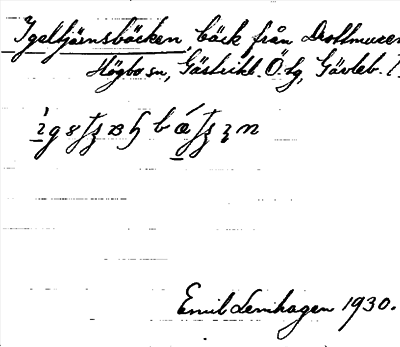 Igeltjärnsbäcken, bäck från Drottmuren
Högbo sn, Gästrikl. Ö. tg, Gävleb. l
Emil Lenhagen 1930.